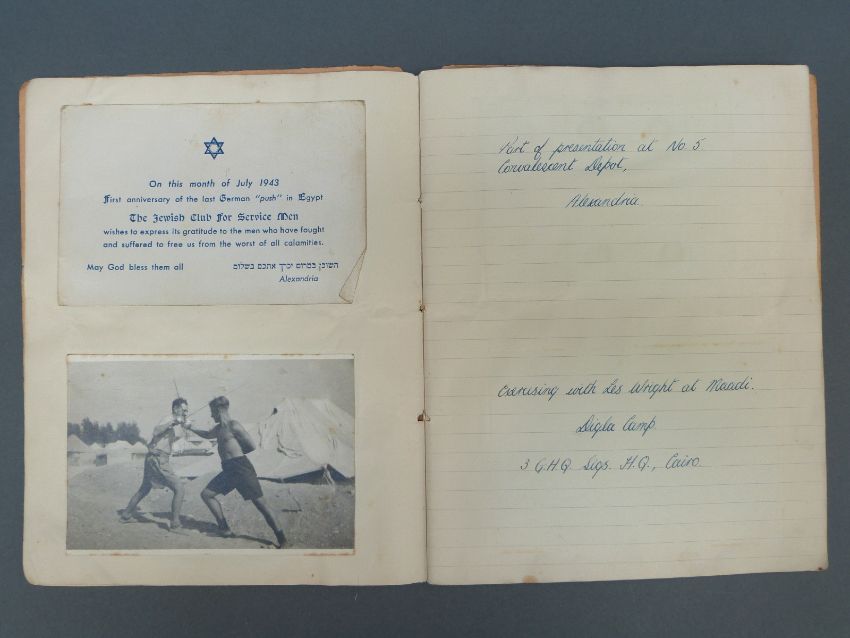 On this month of July 1943
First anniversary of the last German "push" in Egypt
The Jewish Club For Service Men
wishes to express its gratitude to the men who have fought
and suffered to free us from the worst of all calamities.
May God bless them all השוכן במרום יברך אתכם בשלום
Alexandria
Part of presentation at No 5.
Convalescent Depot,
Alexandria.
Exercising with Les Wright at Maadi.
Digla Camp
3 G.H.Q. Sigs. H.Q., Cairo.